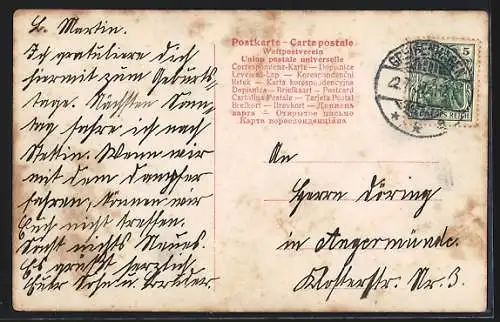 L. Martin.
Ich gratuliere dich
hiermit zum Geburts-
tage. Nächsten Sonn-
tag fahre ich nach
Stettin. Wenn wir
mit dem Dampfer
fahren, können wir
Euch nicht treffen.
Sonst nichts Neues.
Es grüßt herzlich
Euer Sohn u. Bruder.
Postkarte – Carte postale
Weltpostverein
Union postale universelle
Correspondenz-Karte – Dopisnice
Levelező-Lap – Korespondenční
lístek – Karta korespondencyjna
Dopisnica – Briefkaart – Postcard
Cartolina Postale – Tarjeta Postal
Brefkort – Brevkort –
карта – Открытое письмо
Карта
5
REICH
An
Herrn Döring
in Angermünde.
Klosterstr. Nr. 3.